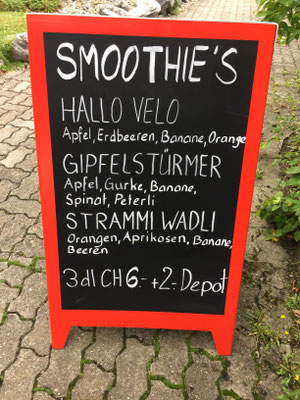 SMOOTHIE'S
HALLO VELO
Apfel, Erdbeeren, Banane, Orange
GIPFELSTÜRMER
Apfel, Gurke, Banane,
Spinat, Peterli
STRAMMI WADLI
Orangen, Aprikosen, Banane,
Beeren
3dl CH 6.- +2.- Depot